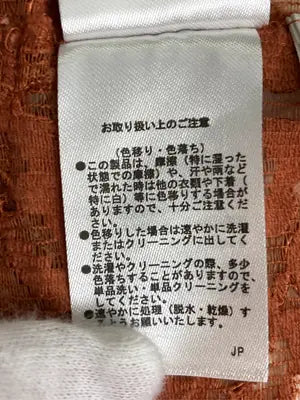 お取り扱い上のご注意
(色移り・色落ち)
●この製品は、摩擦(特に湿った
状態での摩擦)や、汗や雨など
で濡れた時は他の衣類や下着(
特に白)等に色移りする場合が
ありますので、十分ご注意くだ
さい。
●色移りした場合は速やかに洗濯
またはクリーニングに出してく
ださい。
●洗濯やクリーニングの際、多少
色落ちすることがありますので、
単品洗い・単品クリーニング
してください。
●速やかに処理(脱水・乾燥)す
るようお願いいたします。
JP